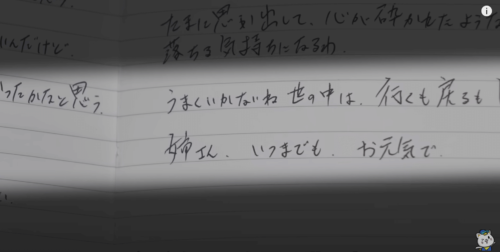 たまに思い出して、心が砕かれたような
落ちる気持ちになるわ
いんだけど
ったかなと思う。
うまくいかないね 世の中は、行くも戻るも
姉さん、いつまでも、お元気で